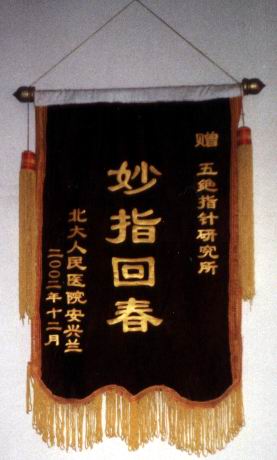 赠 五绝指针研究所
妙指回春
北大人民医院安兴兰
二〇〇二年十二月